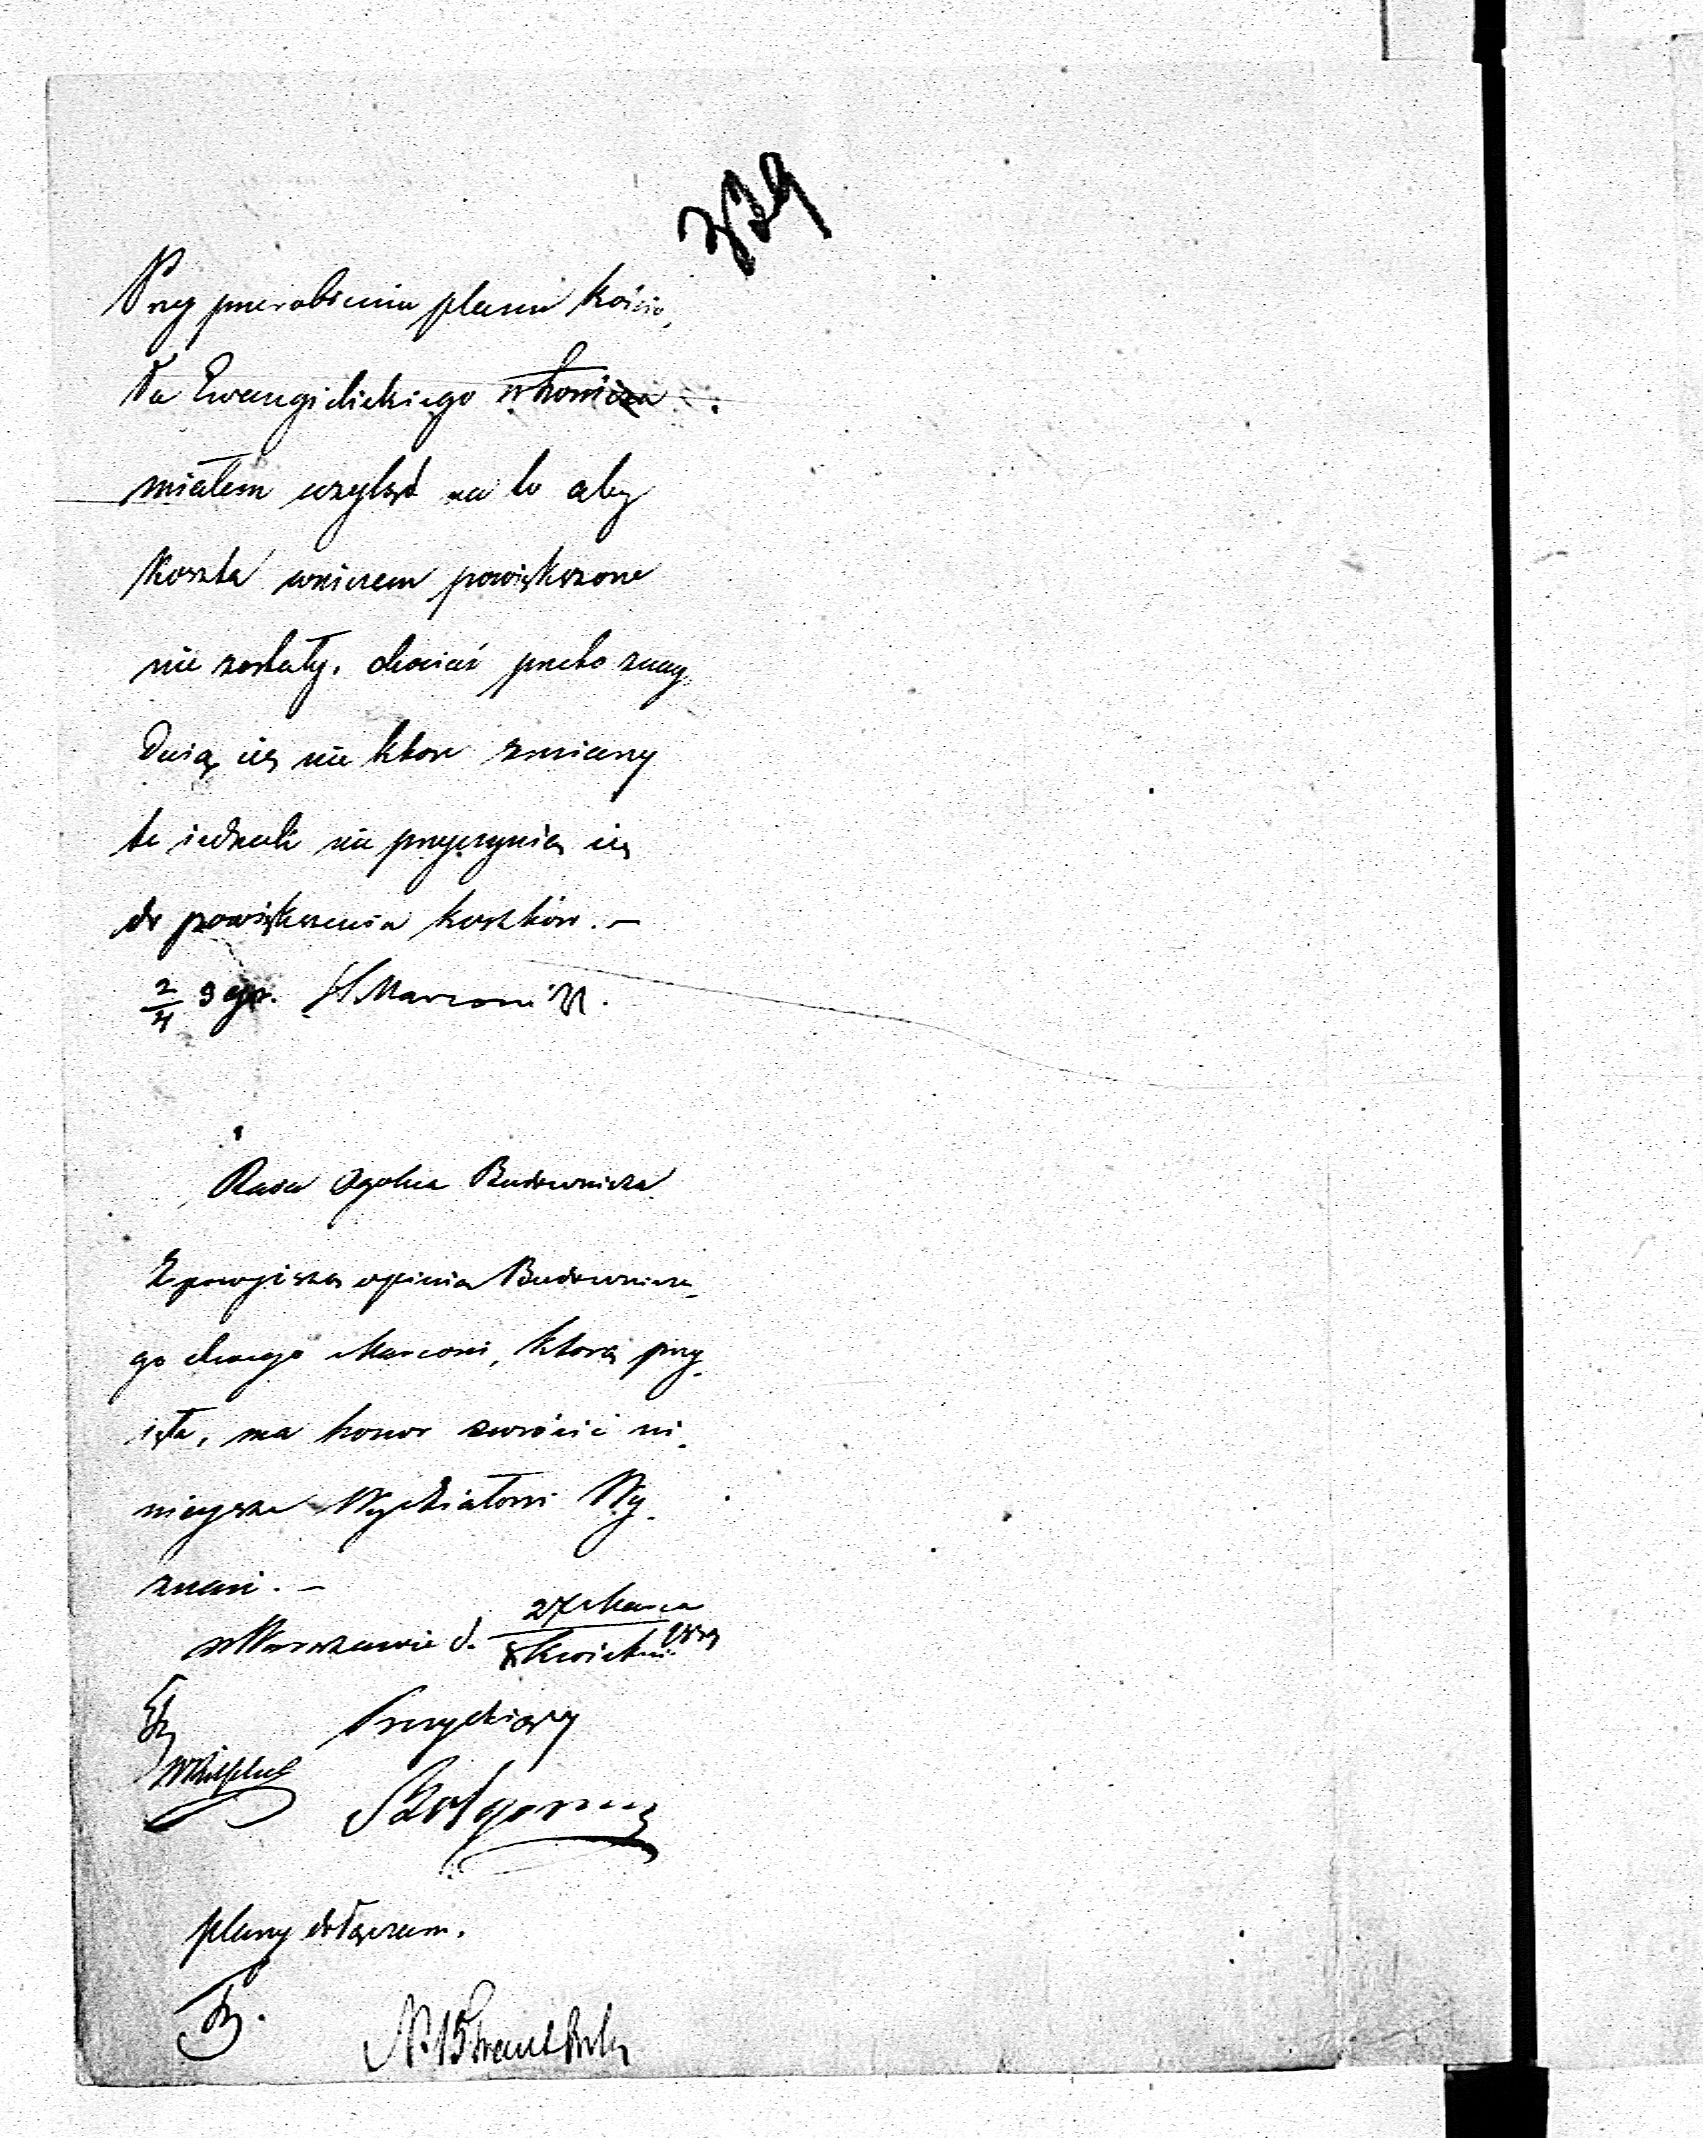 329
Przy przerobieniu planu kościo,
ła Ewangielickiego w Koniczu
miałem wzgląd na to aby
koszta wniczem powiększone
nie zostały, chociaż przeto znay,
duią się nie ktore zmiany
te iednak nie przyczynią się
do powiększenia kosztów. –
2/4 39 r. H Marconi
Rada Ogolna Budownicza
Z powyższą opinią Budownicze,
go Marconi, którą przy,
ięła, ma honor zwrócić ni,
nieysze Wydziałowi Wy,
znań. –
w Warszawie d. 27 Marca
Kwietnia
Prezyduiący
plany dołączam.